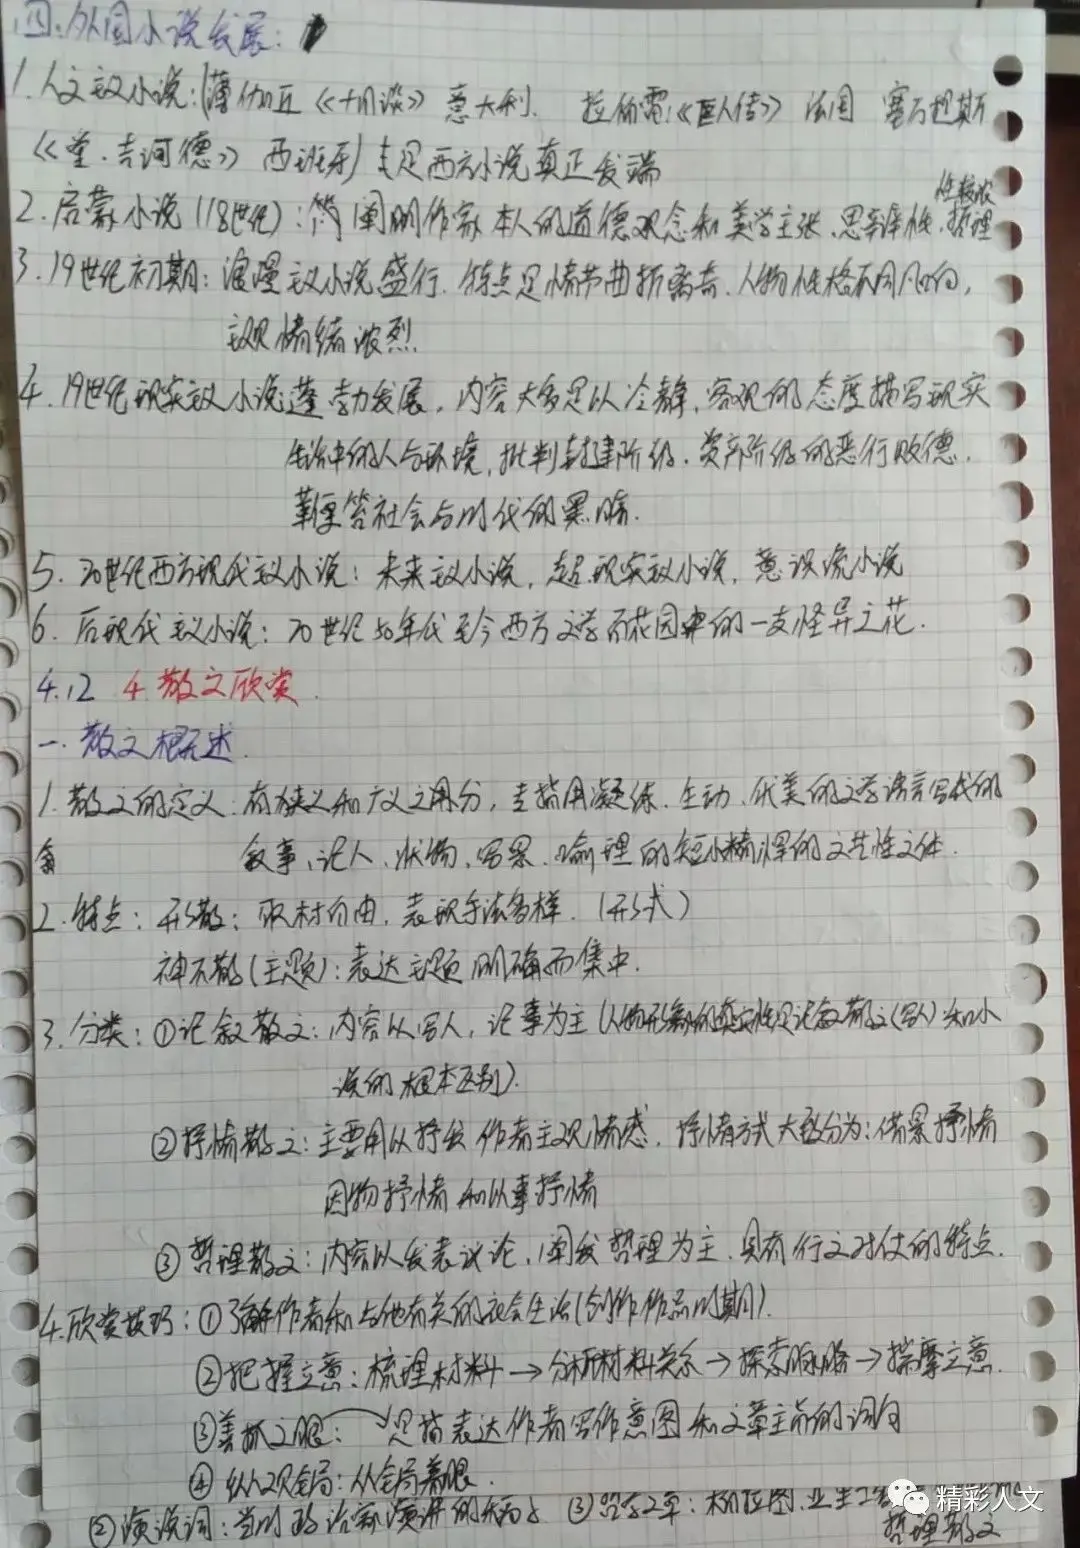 四.外国小说发展：
1.人文主义小说:(薄伽丘《十日谈》意大利. 拉伯雷:《巨人传》法国 塞万提斯
《堂.吉诃德》西班牙)是西方小说真正发端
性较浓
2.启蒙小说(18世纪):阐明作家本人的道德观念和美学主张.思辩性,哲理
3.19世纪初期：浪漫主义小说盛行.特点是情节曲折离奇.人物性格不同凡响,
主观情绪浓烈.
4.19世纪现实主义小说蓬勃发展,内容大多是以冷静,客观的态度描写现实
生活中的人与环境,批判封建阶级.资产阶级的恶行败德.
鞭笞社会与时代的黑暗.
5.20世纪西方现代主义小说：未来主义小说,超现实主义小说,意识流小说
6.后现代主义小说：20世纪50年代至今西方文学百花园中的一支怪异之花.
4.12 4.散文欣赏.
一.散文概述.
1.散文的定义.有狭义和广义之用分,主指用凝练.生动.优美的文学语言写成的
叙事、记人、状物、写景.喻理的短小精悍的文艺性文体.
2.特点：形散：取材自由,表现手法多样.(形式)
神不散(主题)：表达主题明确而集中.
3.分类：①记叙散文：内容以写人,记事为主(人物形象的真实性是记叙散文(写人)和小
说的根本区别).
②抒情散文：主要用以抒发作者主观情感,抒情方式大致分为：借景抒情
因物抒情和以事抒情
③哲理散文：内容以发表议论,阐发哲理为主.具有行文对仗的特点.
4.欣赏技巧：①了解作者和与他有关的社会生活(创作作品时期).
②把握立意：梳理材料→分析材料关系→探索脉络→揣摩立意.
③善抓文眼：是指表达作者写作意图和文章主旨的词句
④纵观全局：从全局着眼.
②演说词：当时政治家演讲的 ③哲学文章：柏拉图,亚里士
哲理散文
精彩人文